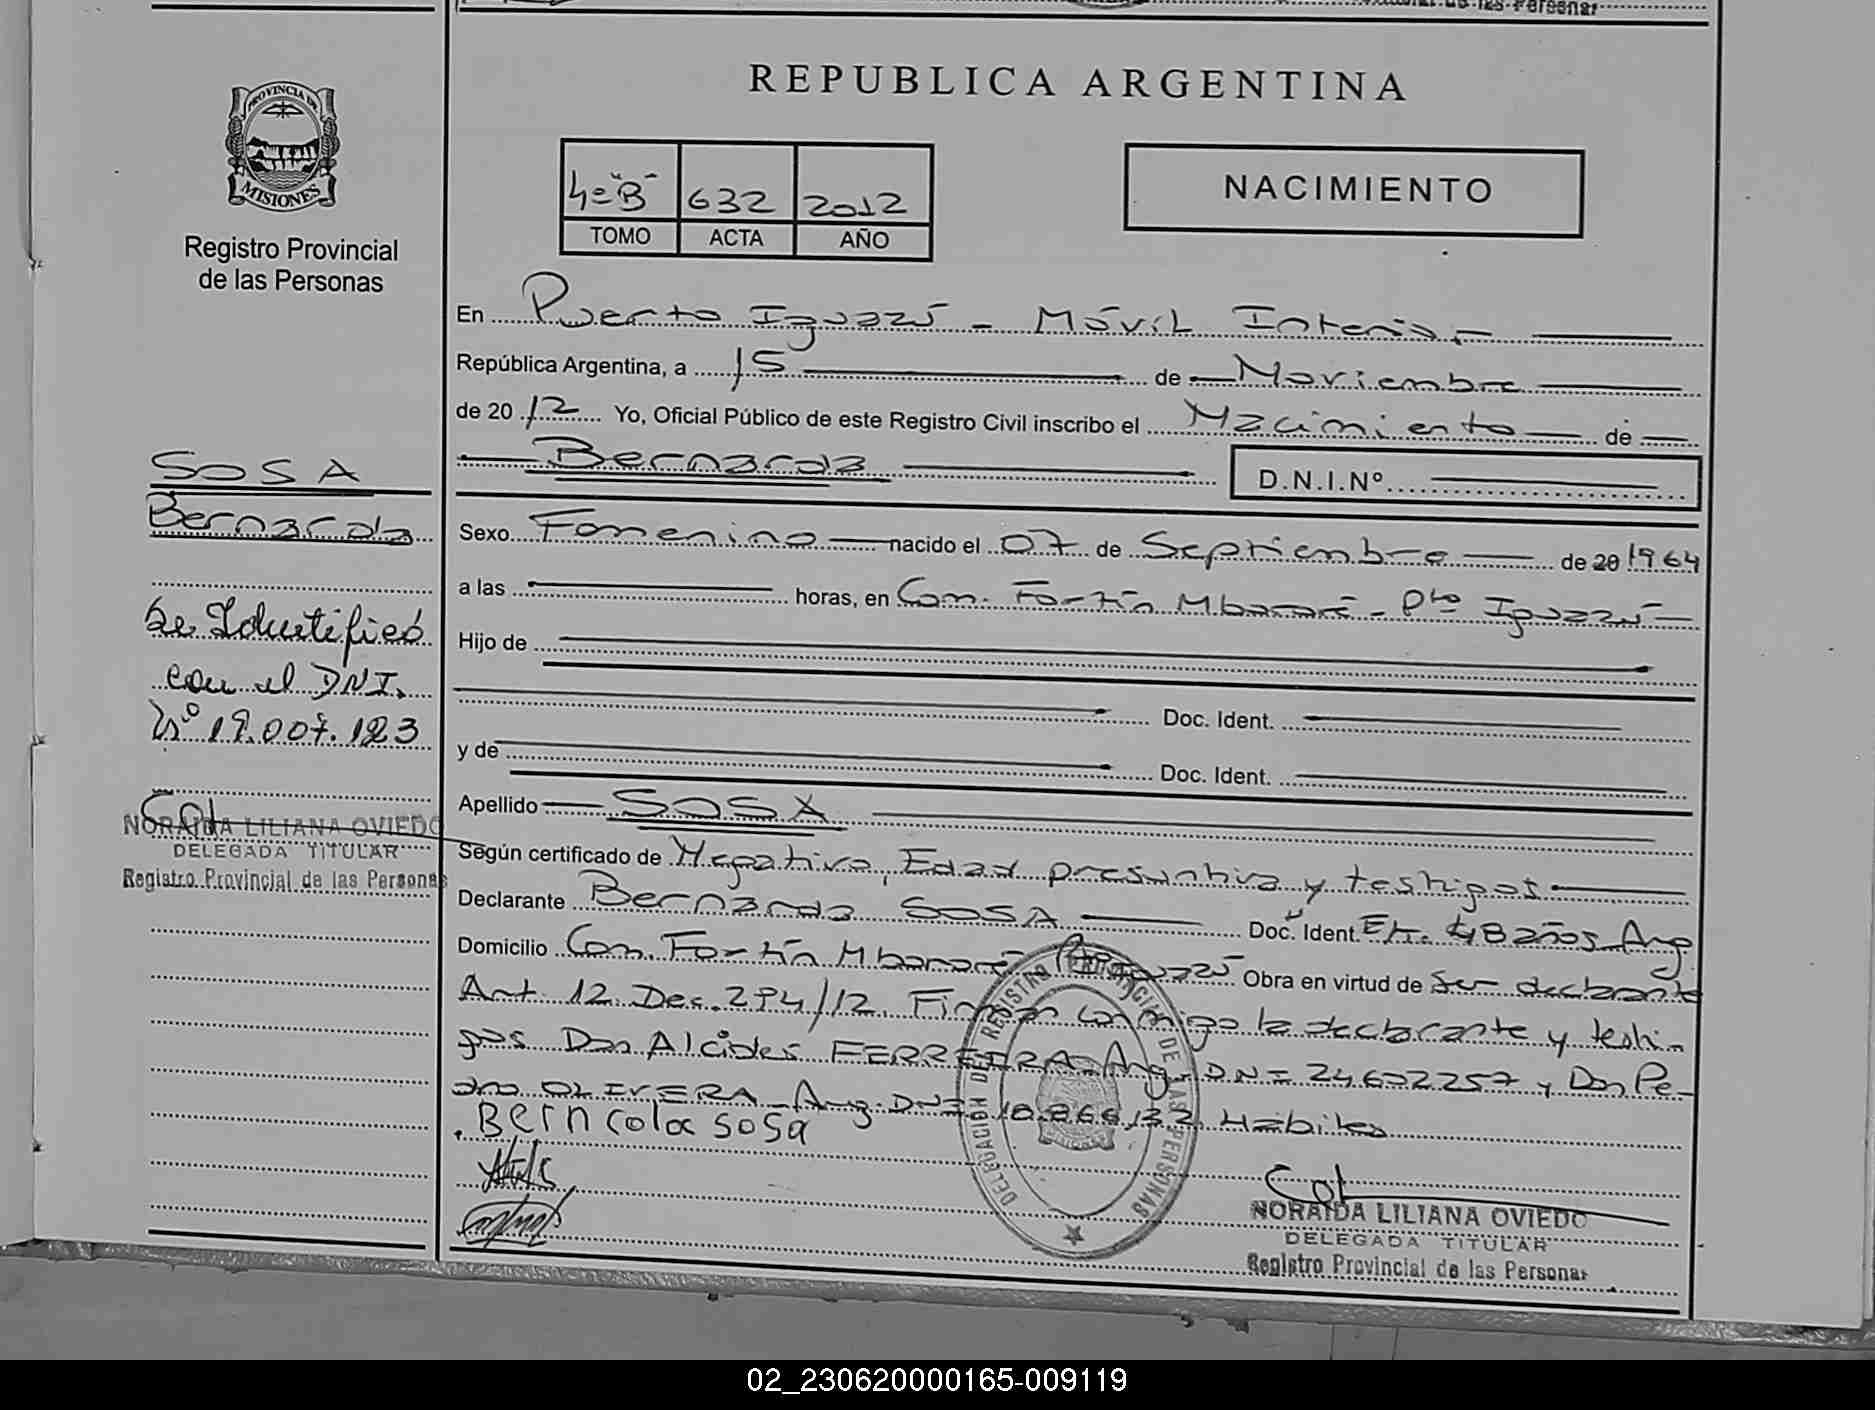 de las Personas
REPUBLICA ARGENTINA
PROVINCIA DE
MISIONES
Registro Provincial
de las Personas
4º "B" 632 2012
TOMO ACTA AÑO
NACIMIENTO
En Puerto Iguazú - Móvil Interior
República Argentina, a 15 de Noviembre
de 2012 Yo, Oficial Público de este Registro Civil inscribo el Nacimiento de
Bernarda
D.N.I.Nº
SOSA
Bernarda
Sexo Femenino nacido el 07 de Septiembre de 20 1964
a las horas, en Com. Fortín Mbororé - Pto Iguazú
Hijo de
Doc. Ident.
y de
Doc. Ident.
Se Identificó
con el DNI.
Nº 19.007.123
NORAIDA LILIANA OVIEDO
DELEGADA TITULAR
Registro Provincial de las Personas
Apellido SOSA
Según certificado de Negativo, Edad presuntiva y testigos
Declarante Bernarda SOSA Doc. Ident. 48 años Arg
Domicilio Com. Fortín Mbororé Pto Iguazú Obra en virtud de Ser declarante
Art. 12 Dec. 294/12. Firman conmigo la declarante y testi-
gos Don Alcides FERREIRA Arg. DNI 24.602.257 y Don Pe-
dro OLIVERA Arg. DNI Hábiles
Berncola sosa
NORAIDA LILIANA OVIEDO
DELEGADA TITULAR
Registro Provincial de las Personas
02_230620000165-009119